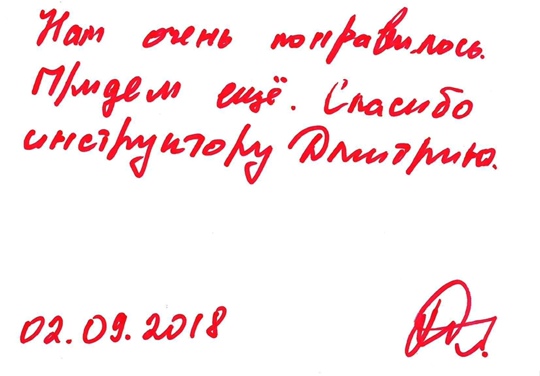 Нам очень понравилось.
Придем ещё. Спасибо
инструктору Дмитрию.
02.09.2018